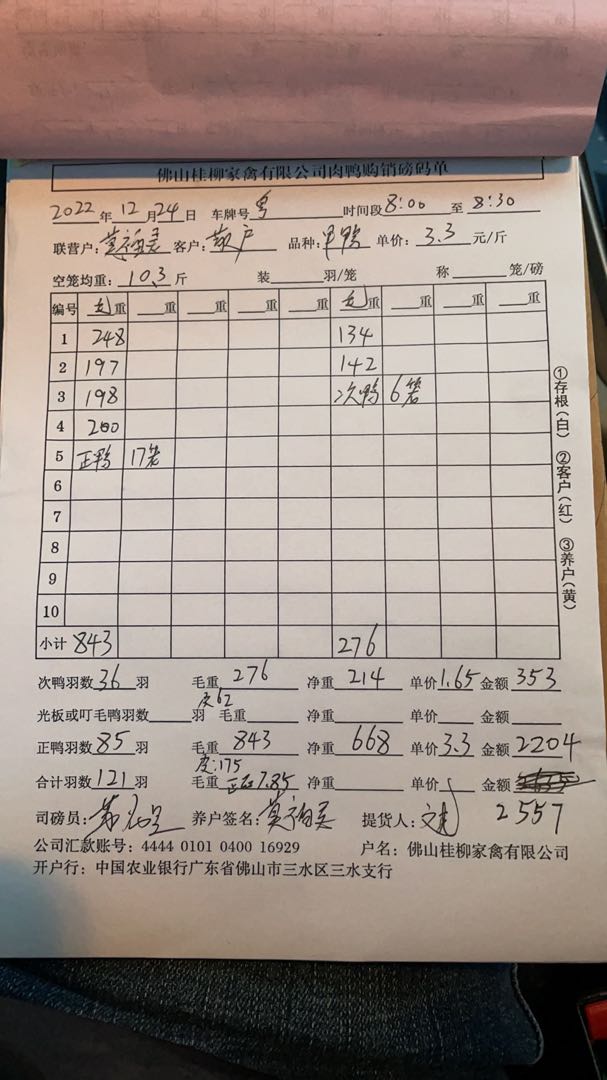 佛山桂柳家禽有限公司肉鸭购销磅码单
2022年12月24日 车牌号 粤 时间段 8:00 至 8:30
联营户: 客户: 散户 品种: 单价: 3.3 元/斤
空笼均重: 10.3 斤 装 羽/笼 称 笼/磅
编号 毛重 重 重 重 重 毛重 重 重 重
1 248 134
2 197 142
3 198 次鸭 6笼
4 200
5 正鸭 17笼
6
7
8
9
10
小计 843 276
①存根(白) ②客户(红) ③养户(黄)
次鸭羽数 36 羽 毛重 276 净重 214 单价 1.65 金额 353
皮62
光板或叮毛鸭羽数 羽 毛重 净重 单价 金额
正鸭羽数 85 羽 毛重 843 净重 668 单价 3.3 金额 2204
皮:175
合计羽数 121 羽 毛重 7.85 净重 单价 金额
司磅员: 养户签名: 提货人: 2557
公司汇款账号: 4444 0101 0400 16929 户名: 佛山桂柳家禽有限公司
开户行: 中国农业银行广东省佛山市三水区三水支行